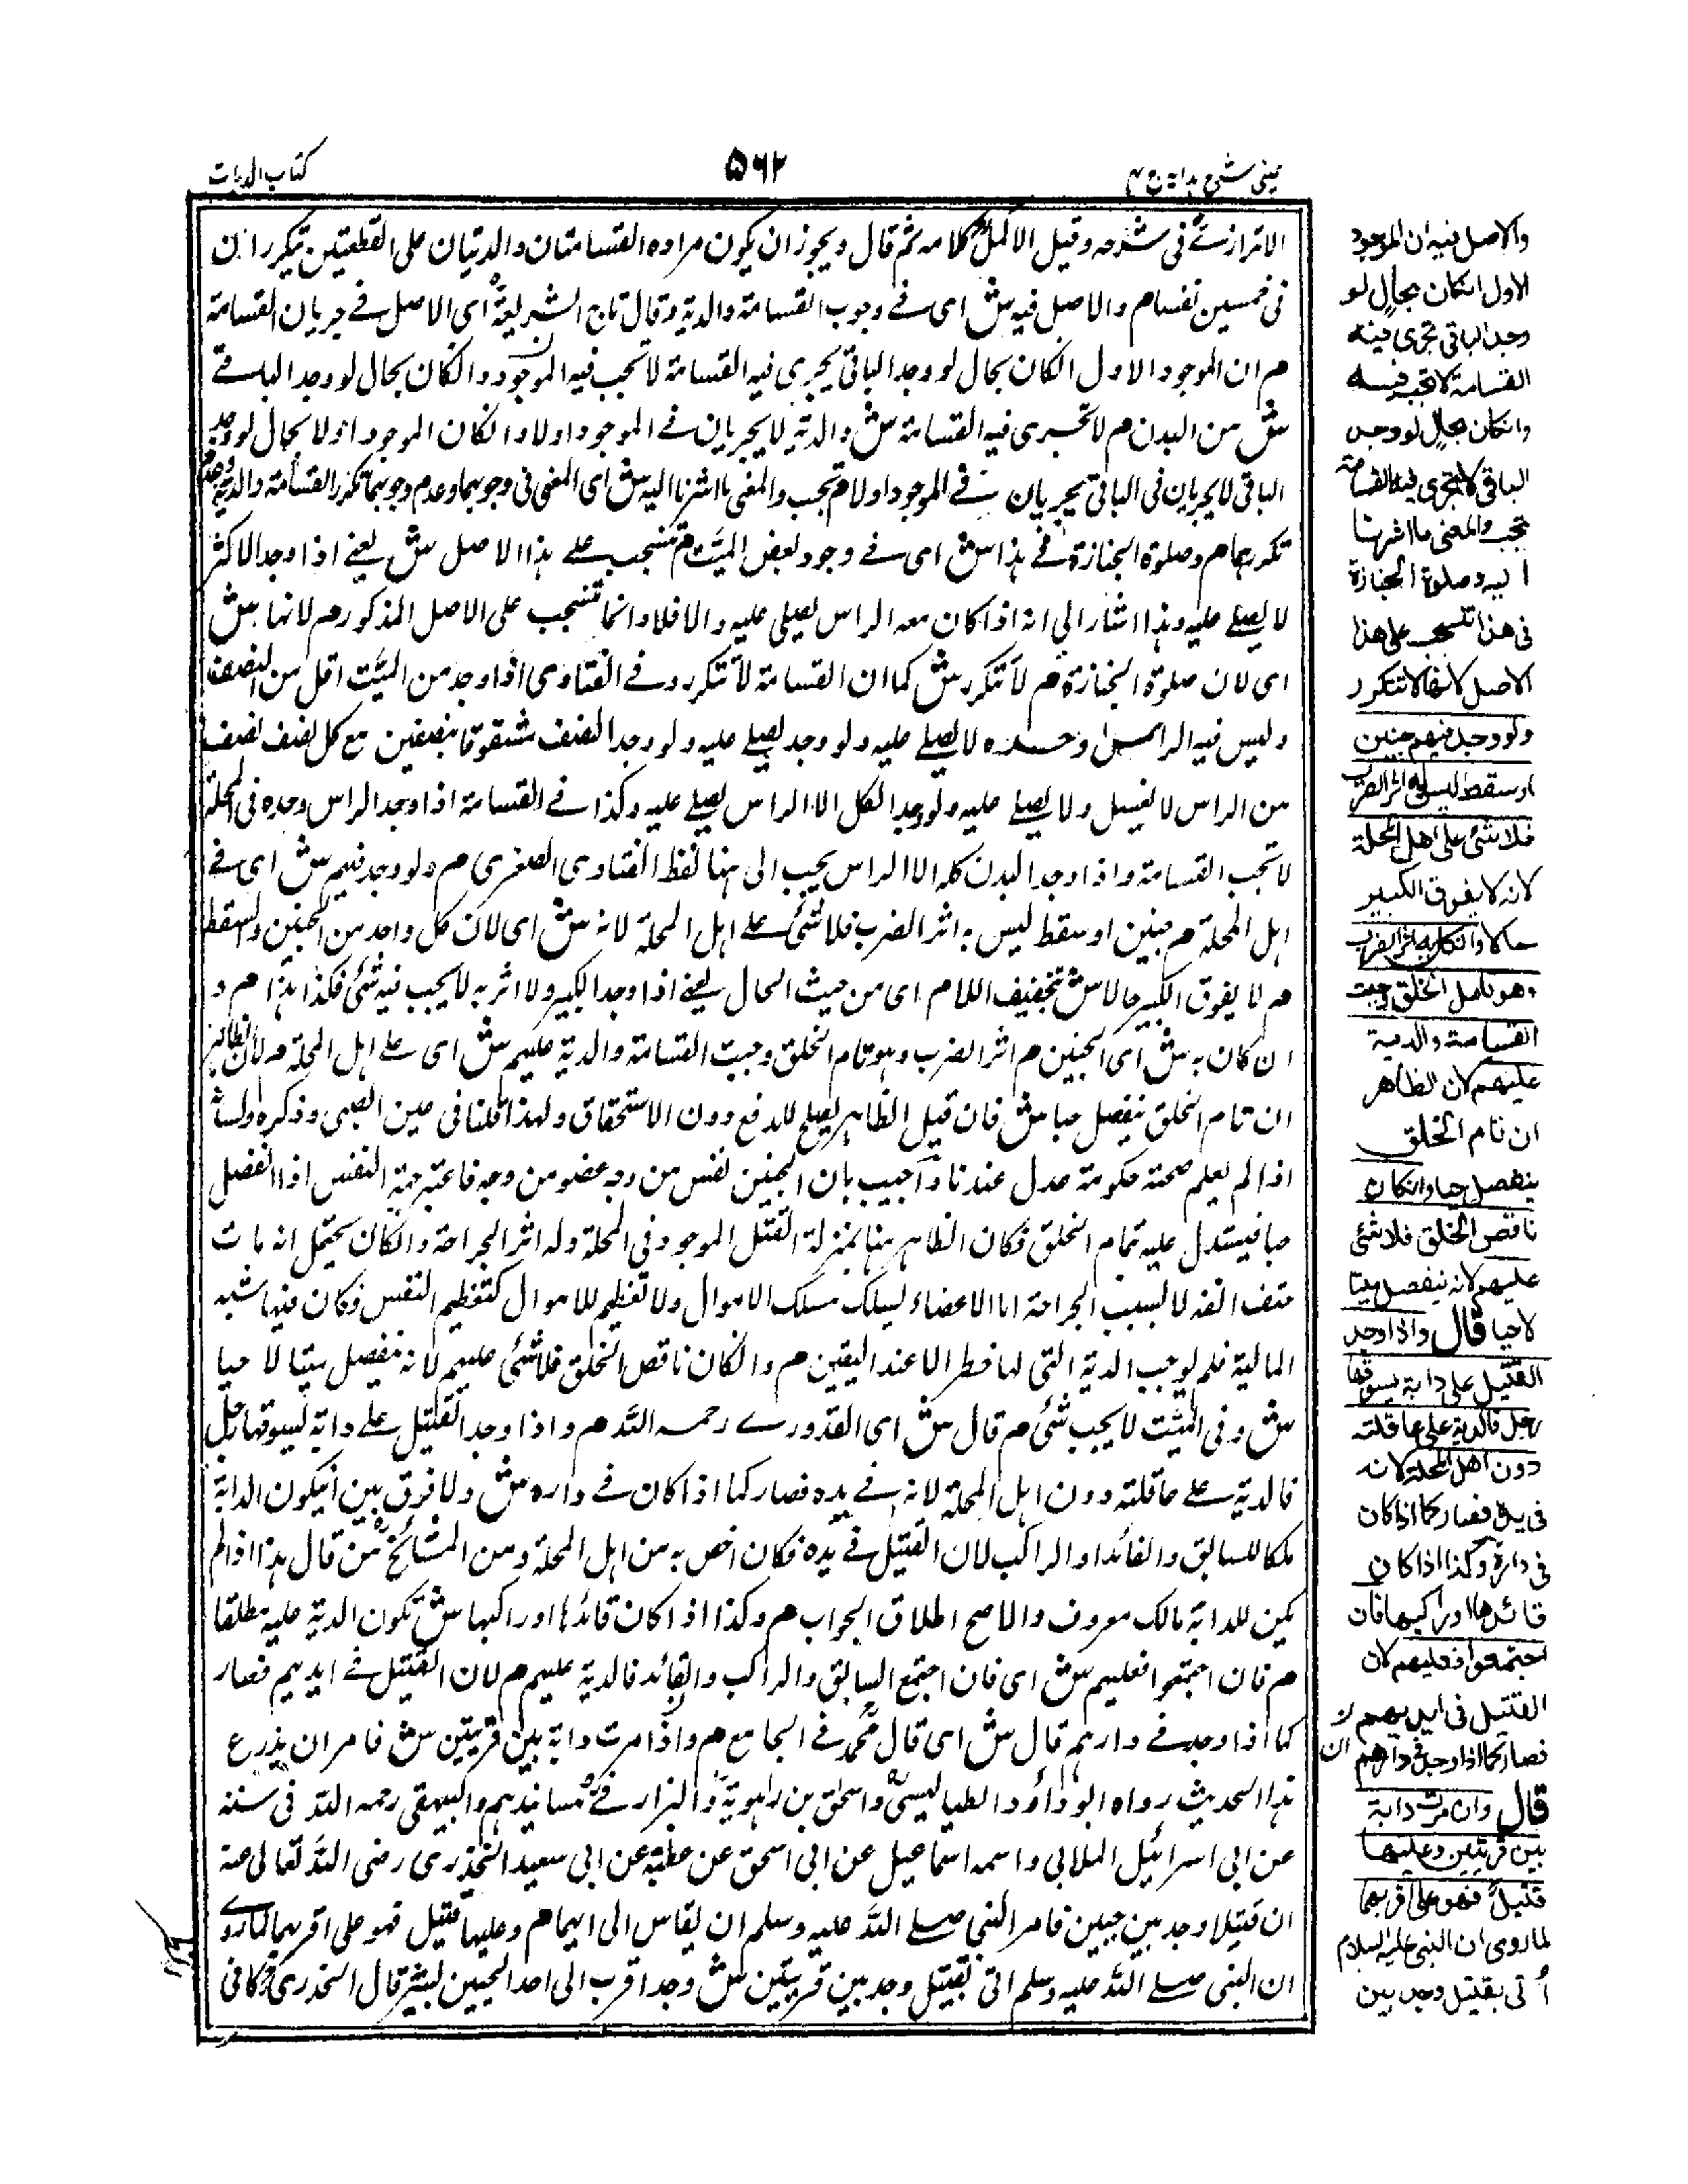 عینی شرح ہدایہ ج ۴
۵۶۲
كتاب الديات
الاترازی فی شرحه وقيل الاكمل كلامه ثم قال ويجوز ان يكون مراده القسامتان والديتان على القطعتين تيكرر ان
فی خمسين نفسا م والاصل فيه ش ای فے وجوب القسامة والدية وقال تاج الشريعة ای الاصل فے جريان القسامة
م ان الموجود الاول انكان بحال لو وجد الباقی يجری فيه القسامة لا تجب فيه الموجود وانكان بحال لو وجد الباقے
ش من البدن م لا تجری فيه القسامة ش والدية لا يجريان فے الموجود اولا وانكان الموجود اولا بحال لو وجد
الباقی لا يجريان فی الباقی يجريان فے الموجود اولا م تجب والمعنی ما اشرنا اليه ش ای المعنی فی وجوبهما وعدم وجوبهما تكرر القسامة والدية وعدم
تكررهما م وصلوة الجنازة فے هذا ش ای فے وجود بعض الميت م تنسحب علے هذا الاصل ش يعنے اذا وجد الاكثر
لا يصلے عليه وهذا اشار الی انه اذا كان معه الراس يصلی عليه والا فلا وانما تنسحب علی الاصل المذكور م لانها ش
ای لان صلوة الجنازة م لا تتكرر ش كما ان القسامة لا تتكرر وفے الفتاوی اذا وجد من الميت اقل من النصف
وليس فيه الراس وحده لا يصلے عليه ولو وجد يصلے عليه ولو وجد النصف مشقوقا بنصفين مع كل نصف نصف
من الراس لا يغسل ولا يصلے عليه ولو وجد الكل الا الراس يصلے عليه وكذا فے القسامة اذا وجد الراس وحده فی المحلة
لا تجب القسامة واذا وجد البدن كله الا الراس يجب الی هنا لفظ الفتاوی الصغری م ولو وجد فيهم ش ای فے
اهل المحلة م جنين او سقط ليس به اثر الضرب فلا شئ علے اهل المحلة لانه ش ای لان كل واحد من الجنين والسقط
م لا يفوق الكبير حالا ش بتخفيف اللام ای من حيث الحال يعنے اذا وجد الكبير ولا اثر به لا يجب فيه شئ فكذا هذا م و
ان كان به ش ای الجنين م اثر الضرب وهو تام الخلق وجبت القسامة والدية عليهم ش ای علے اهل المحلة م لان الظاهر
ان تام الخلق ينفصل حيا ش فان قيل الظاهر يصلح للدفع دون الاستحقاق ولهذا قلنا فی عين الصبی وذكره ولسانه
اذا لم يعلم صحته حكومة عدل عندنا واجيب بان الجنين نفس من وجه عضو من وجه فاعتبر جهة النفس اذا انفصل
حيا فيستدل عليه تمام الخلق فكان الظاهر هنا بمنزلة القتل الموجود فی المحلة وله اثر الجراحة وانكان يحتمل انه مات
حتف انفه لا بسبب الجراحة اما الاعضاء ليسلك مسلك الاموال ولا تعظيم للاموال كتعظيم النفس فكان فيها شبه
المالية فلم يوجب الدية التی لها خطر الا عند اليقين م وانكان ناقص الخلق فلا شئ عليهم لانه ينفصل ميتا لا حيا
ش وفی الميت لا يجب شئ م قال ش ای القدورے رحمه الله م واذا وجد القتيل علے دابة يسوقها رجل
فالدية علے عاقلته دون اهل المحلة لانه فے يده فصار كما اذا كان فے داره ش ولا فرق بين ان يكون الدابة
ملكا للسائق والقائد او الراكب لان القتيل فے يده فكان اخص به من اهل المحلة ومن المشائخ من قال هذا اذا لم
يكن للدابة مالك معروف والاصح اطلاق الجواب م وكذا اذا كان قائدها او راكبها ش تكون الدية عليه مطلقا
م فان اجتمعوا فعليهم ش ای فان اجتمع السائق والراكب والقائد فالدية عليهم م لان القتيل فے ايديهم فصار
كما اذا وجد فے دارهم قال ش ای قال محمد فے الجامع م واذا مرت دابة بين قريتين ش فامر ان يذرع
هذا الحديث رواه ابو داؤد الطيالسی واسحق بن راهوية والبزار فے مسانيدهم والبيهقی رحمه الله فی سننه
عن ابی اسرائيل الملائی واسمه اسماعيل عن ابی اسحق عن عطية عن ابی سعيد الخذری رضی الله تعالی عنه
ان قتيلا وجد بين حيين فامر النبی صلے الله عليه وسلم ان يقاس الی ايهما م وعليها قتيل فهو علی اقربهما لما روے
ان النبی صلے الله عليه وسلم اتی بقتيل وجد بين قريتين ش وجد اقرب الی احد الحيين بشبر قال الخدری فكانی
والاصل فيه ان الموجود
الاول انكان بحال لو
وجد الباقی تجری فيه
القسامة لا تجب فيه
وانكان بحال لو وجد
الباقی لا تجری فيه القسامة
تجب والمعنی ما اشرنا
اليه وصلوة الجنازة
فی هذا تنسحب علی هذا
الاصل لانها لا تتكرر
ولو وجد فيهم جنين
او سقط ليس به اثر الضرب
فلا شئ علی اهل المحلة
لانه لا يفوق الكبير
حالا وانكان به اثر الضرب
وهو تام الخلق وجبت
القسامة والدية
عليهم لان الظاهر
ان تام الخلق
ينفصل حيا وانكان
ناقص الخلق فلا شئ
عليهم لانه ينفصل ميتا
لا حيا قال واذا وجد
القتيل علی دابة يسوقها
رجل فالدية علی عاقلته
دون اهل المحلة لانه
فی يده فصار كما اذا كان
فی داره وكذا اذا كان
قائدها او راكبها فان
اجتمعوا فعليهم لان
القتيل فی ايديهم
فصار كما اذا وجد فی دارهم
قال وان مرت دابة
بين قريتين وعليها
قتيل فهو علی اقربهما
لما روی ان النبی عليه السلام
أتی بقتيل وجد بين